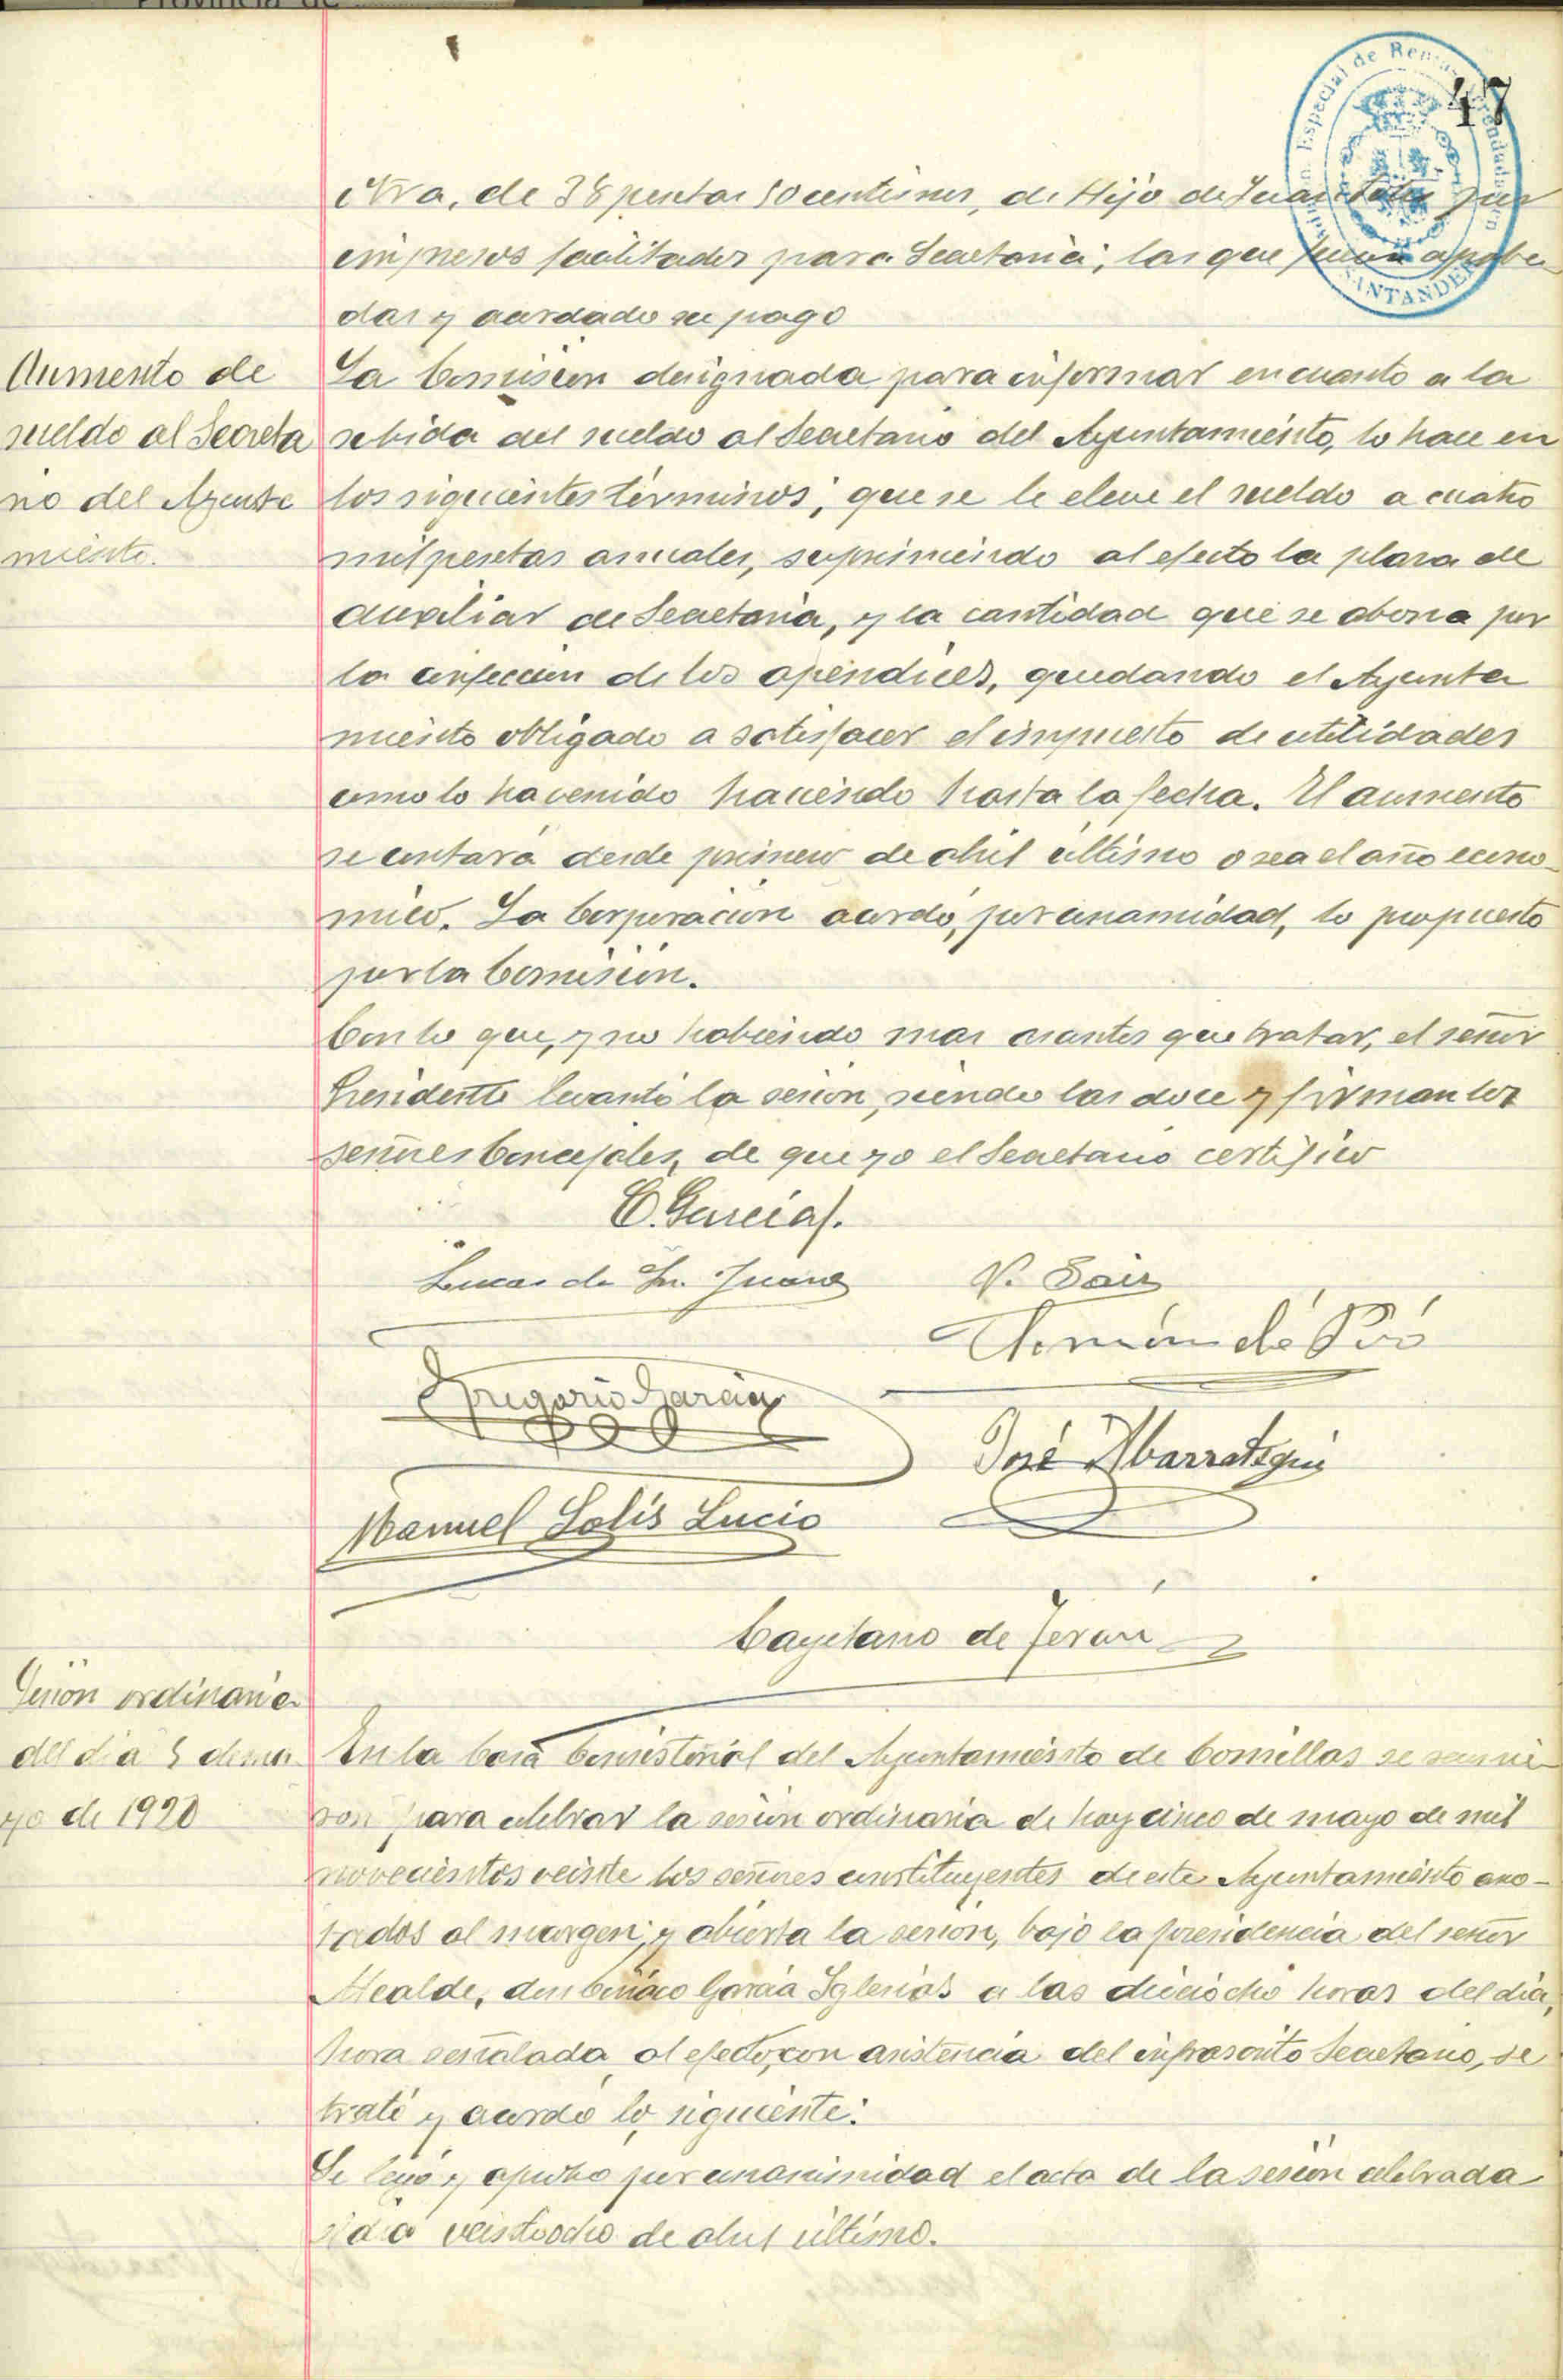 Provincia de
47
Especial de Rentas Arrendadas en
SANTANDER
otra, de 38 pesetas 50 centimos, de Hijo de Juan por
impresos facilitados para Secretaria; las que fueron aproba-
das y acordado su pago
Aumento de
sueldo al Secreta
rio del Ayunta
miento.
La Comision designada para informar en cuanto a la
subida del sueldo al Secretario del Ayuntamiento, lo hace en
los siguientes términos; que se le eleve el sueldo a cuatro
mil pesetas anuales, suprimiendo al efecto la plaza de
auxiliar de Secretaria, y la cantidad que se abona por
la confeccion de los apéndices, quedando el Ayunta
miento obligado a satisfacer el impuesto de utilidades
como lo ha venido haciendo hasta la fecha. El aumento
se contará desde primero de abril último o sea el año econo-
mico. La Corporacion acordó, por unamidad, lo propuesto
por la Comisión.
Con lo que, y no habiendo mas asuntos que tratar, el señor
Presidente levantó la sesion, siendo las doce y firman los
señores Concejales, de que yo el Secretario certifico
C. García
Lucas de Sn. Juan
V. Saiz
Fermín de Rió
Gregorio García
José Abarrategui
Manuel Solís Lucio
Cayetano de Terán
Sesión ordinaria
del dia 5 de ma
yo de 1920
En la Casa Consistorial del Ayuntamiento de Comillas se reunie-
ron para celebrar la sesion ordinaria de hoy cinco de mayo de mil
novecientos veinte los señores constituyentes de este Ayuntamiento ano-
tados al margen; y abierta la sesion, bajo la presidencia del señor
Alcalde, don Ciriaco García Iglesias a las dieciocho horas del dia,
hora señalada al efecto, con asistencia del infrascrito Secretario, se
trató y acordó lo siguiente:
Se leyó y aprobó por unanimidad el acta de la sesión celebrada
el dia veintiocho de abril último.